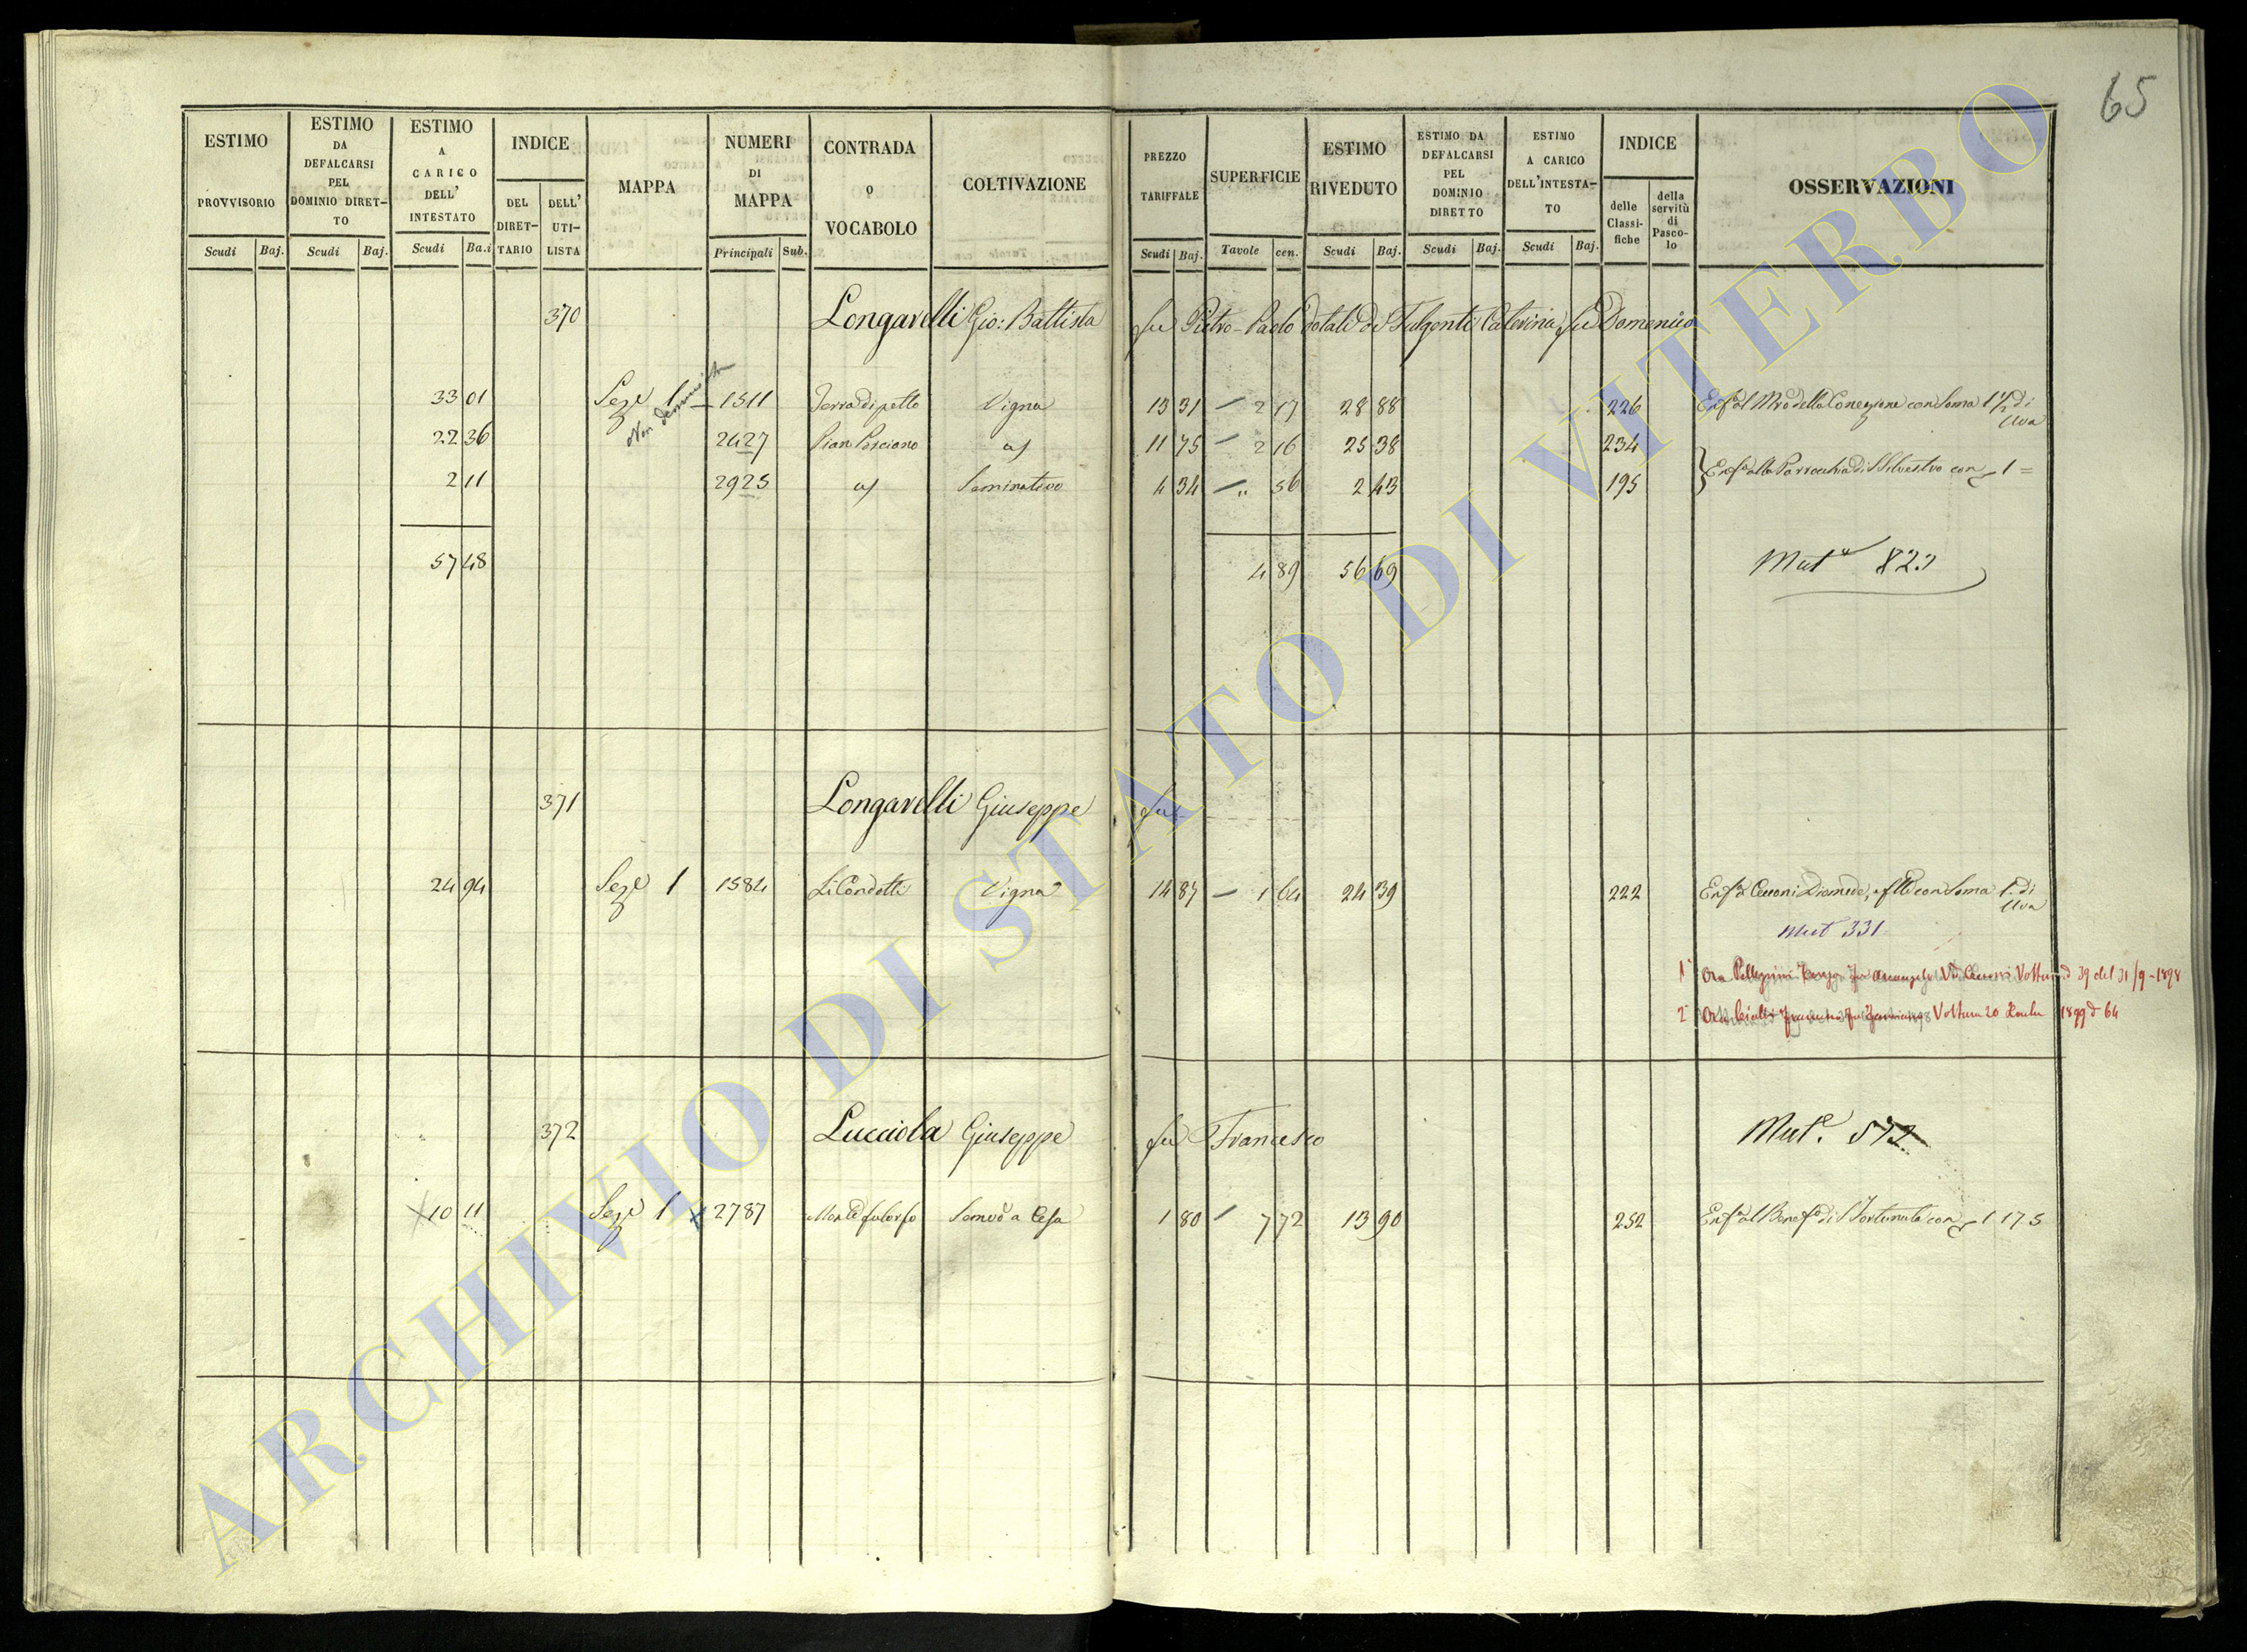 65
ESTIMO PROVVISORIO Scudi Baj.
ESTIMO DA DEFALCARSI PEL DOMINIO DIRET-TO Scudi Baj.
ESTIMO A CARICO DELL' INTESTATO Scudi Ba.i
INDICE DEL DIRET-TARIO DELL' UTI-LISTA
MAPPA
NUMERI DI MAPPA Principali Sub.
CONTRADA O VOCABOLO
COLTIVAZIONE
PREZZO TARIFFALE Scudi Baj.
SUPERFICIE Tavole cen.
ESTIMO RIVEDUTO Scudi Baj.
ESTIMO DA DEFALCARSI PEL DOMINIO DIRETTO Scudi Baj.
ESTIMO A CARICO DELL'INTESTA-TO Scudi Baj.
INDICE delle Classi-fiche della servitù di Pasco-lo
OSSERVAZIONI
370 Longarelli Gio: Battista fu Pietro-Paolo dotali di Fulgenti Caterina fu Domenico
33 01 Seze 1 1511 Terra di petto Vigna 13 31 2 17 28 88 226 Enfa al Mro della Concezione con Soma 1 1/2 di Uva
Non
22 36 2427 Pian Porciano a/ 11 75 2 16 25 38 234
2 11 2925 a/ Seminativo 4 34 " 56 2 43 195 Enfa alla Parrocchia di S Silvestro con 1 =
57 48 4 89 56 69 Muta 822
371 Longarelli Giuseppe fu
24 94 Seze 1 1584 Li Condotti Vigna 14 87 1 64 24 39 222 Enfa Cecconi Diomede, e flli con Soma 1: di Uva
Mut 331
1° Ora Pellegrini fu Arcangelo Voltura d 39 del 31/9-1898
2° Ora Voltura 20 1899 d 64
372 Lucciola Giuseppe fu Francesco Muta. 572
10 11 Seze 1 2787 Monte Semvo a Cesa 1 80 7 72 13 90 252 Enfa al Benefo di S Fortunata con 1 17 5
ARCHIVIO DI STATO DI VITERBO